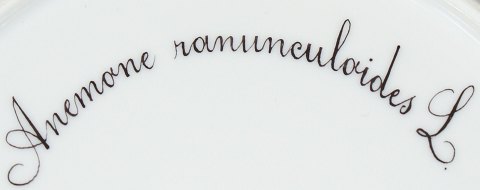 Anemone ranunculoides L.